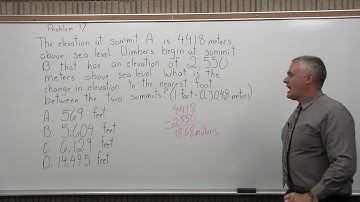 Problem 17
The elevation at summit A is 4418 meters
above sea level. Climbers begin at summit
B that has an elevation of 2,550
meters above sea level. What is the
change in elevation to the nearest foot
between the two summits? (1 foot = 0.3048 meters)
A. 569 feet
B. 5,604 feet
C. 6,129 feet
D. 14,495 feet
4418
-2550
1868 meters